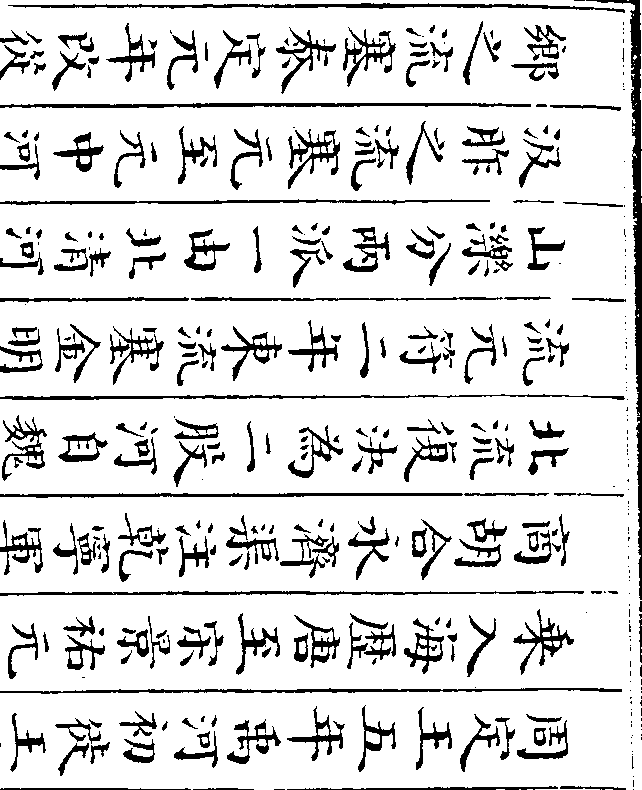 周定王五年禹河初徙王
乗入海歴唐至宋景祐元
商胡合永濟渠注乾寧軍
北流復決為二股河自魏
流元符二年東流塞金明
山濼分兩派一由北清河
汲胙之流塞元至元中河
鄉之流塞泰定元年改從